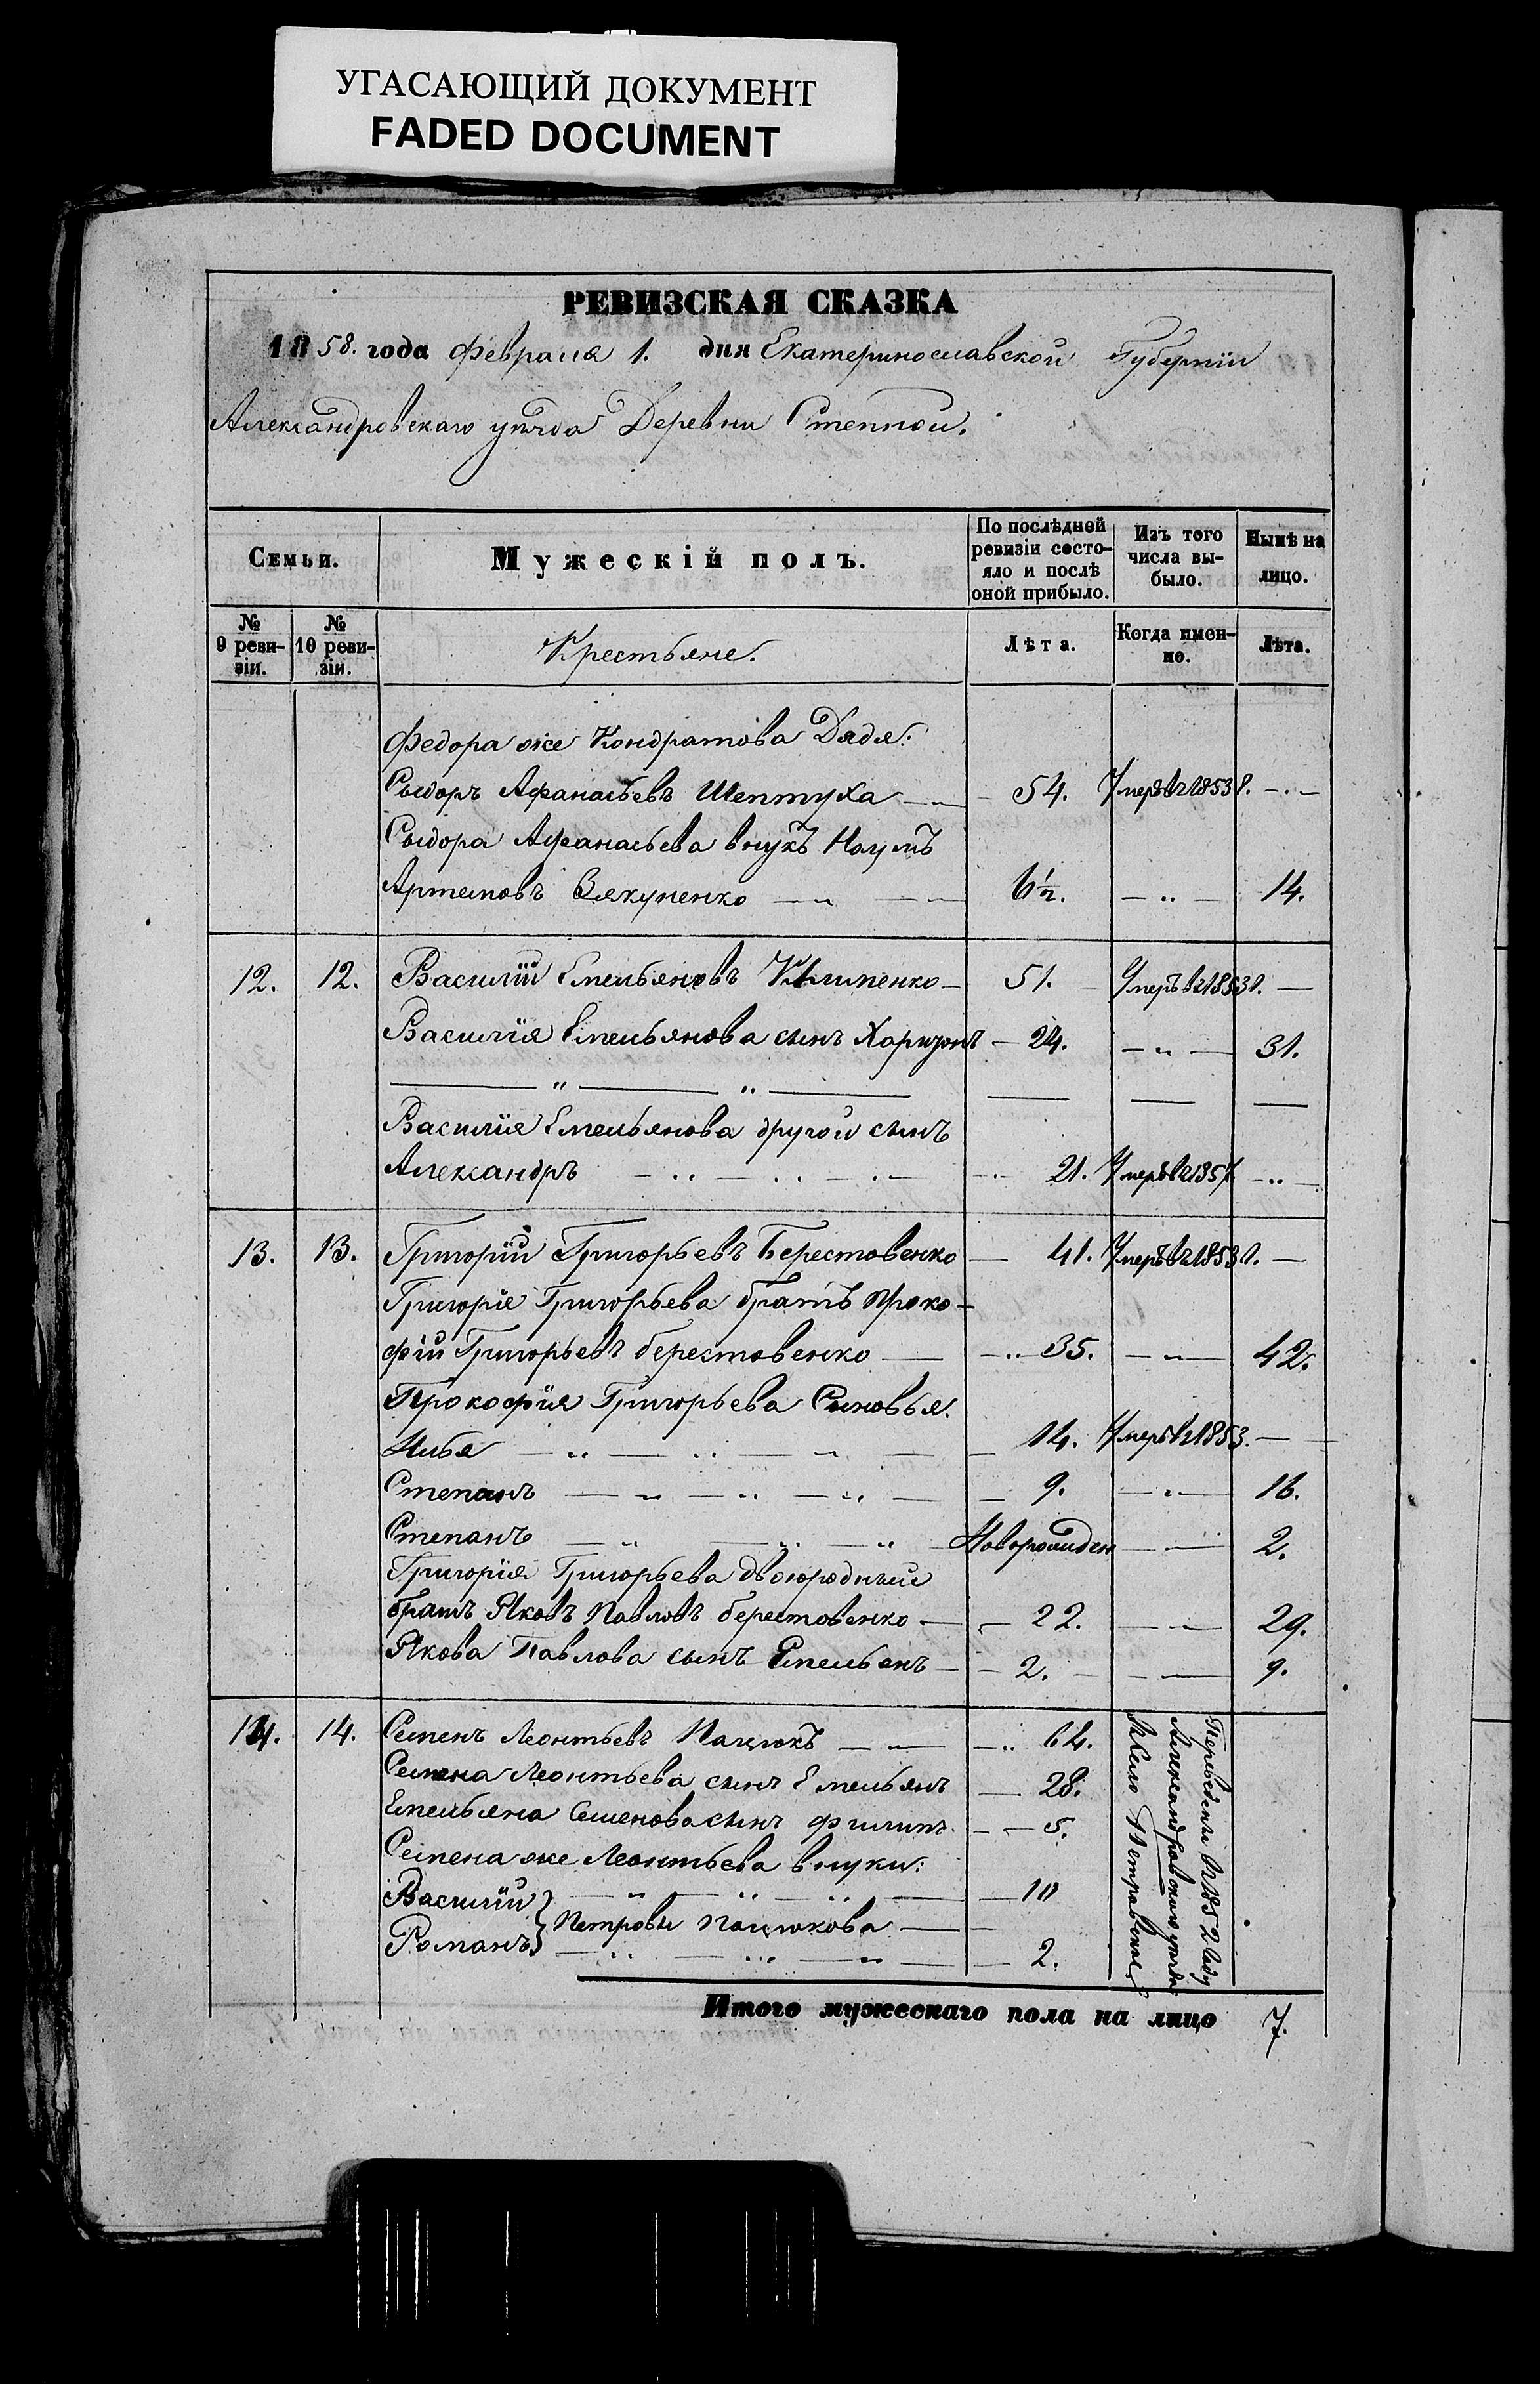 УГАСАЮЩИЙ ДОКУМЕНТ
FADED DOCUMENT
РЕВИЗСКАЯ СКАЗКА
1858. года Февраля 1. дня Екатеринославской Губернiи
Александровскаго уѣзда Деревни Степной.
Семьи.
Мужескiй полъ.
По послѣдней ревизiи состо-
яло и послѣ
оной прибыло.
Изъ того
числа вы-
было.
Нынѣ на
лицо.
№
9 реви-
зiи.
№
10 реви-
зiи.
Крестьяне.
Лѣта.
Когда имен-
но.
Лѣта.
Федора же Кондратова Дядя:
Сыдоръ Афанасьевъ Шептуха 54. Умеръ въ 1853
Сыдора Афанасьева внукъ Наумъ
Артемовъ 6½. 14.
12. 12. Василiй Емельяновъ Клименко 51. Умеръ въ 1853
Василiя Емельянова сынъ Харитонъ 24. 31.
Василiя Емельянова другой сынъ
Александръ 21. Умеръ въ 1857
13. 13. Григорiй Григорьевъ Берестовенко 41. Умеръ въ 1853
Григорiя Григорьева братъ Проко-
фiй Григорьевъ берестовенко 35. 42.
Прокофiя Григорьева Сыновья.
Илья 14. Умеръ въ 1853.
Степанъ 9. 16.
Степанъ Новорожден 2.
Григорiя Григорьева двоюродный
братъ Яковъ Павловъ берестовенко 22. 29.
Якова Павлова сынъ Емельянъ 2. 9.
14. 14. Семенъ Леонтьевъ Пацюкъ 64.
Семена Леонтьева сынъ Емельянъ 28.
Емельяна Семенова сынъ Филипъ 5.
Семена же Леонтьева внуки:
Василiй 10
Петровы Пацюкова
Романъ 2.
Переведены въ 1852 году
Александровскаго уѣзда
въ Село Петровское
Итого мужескаго пола на лицо 7.